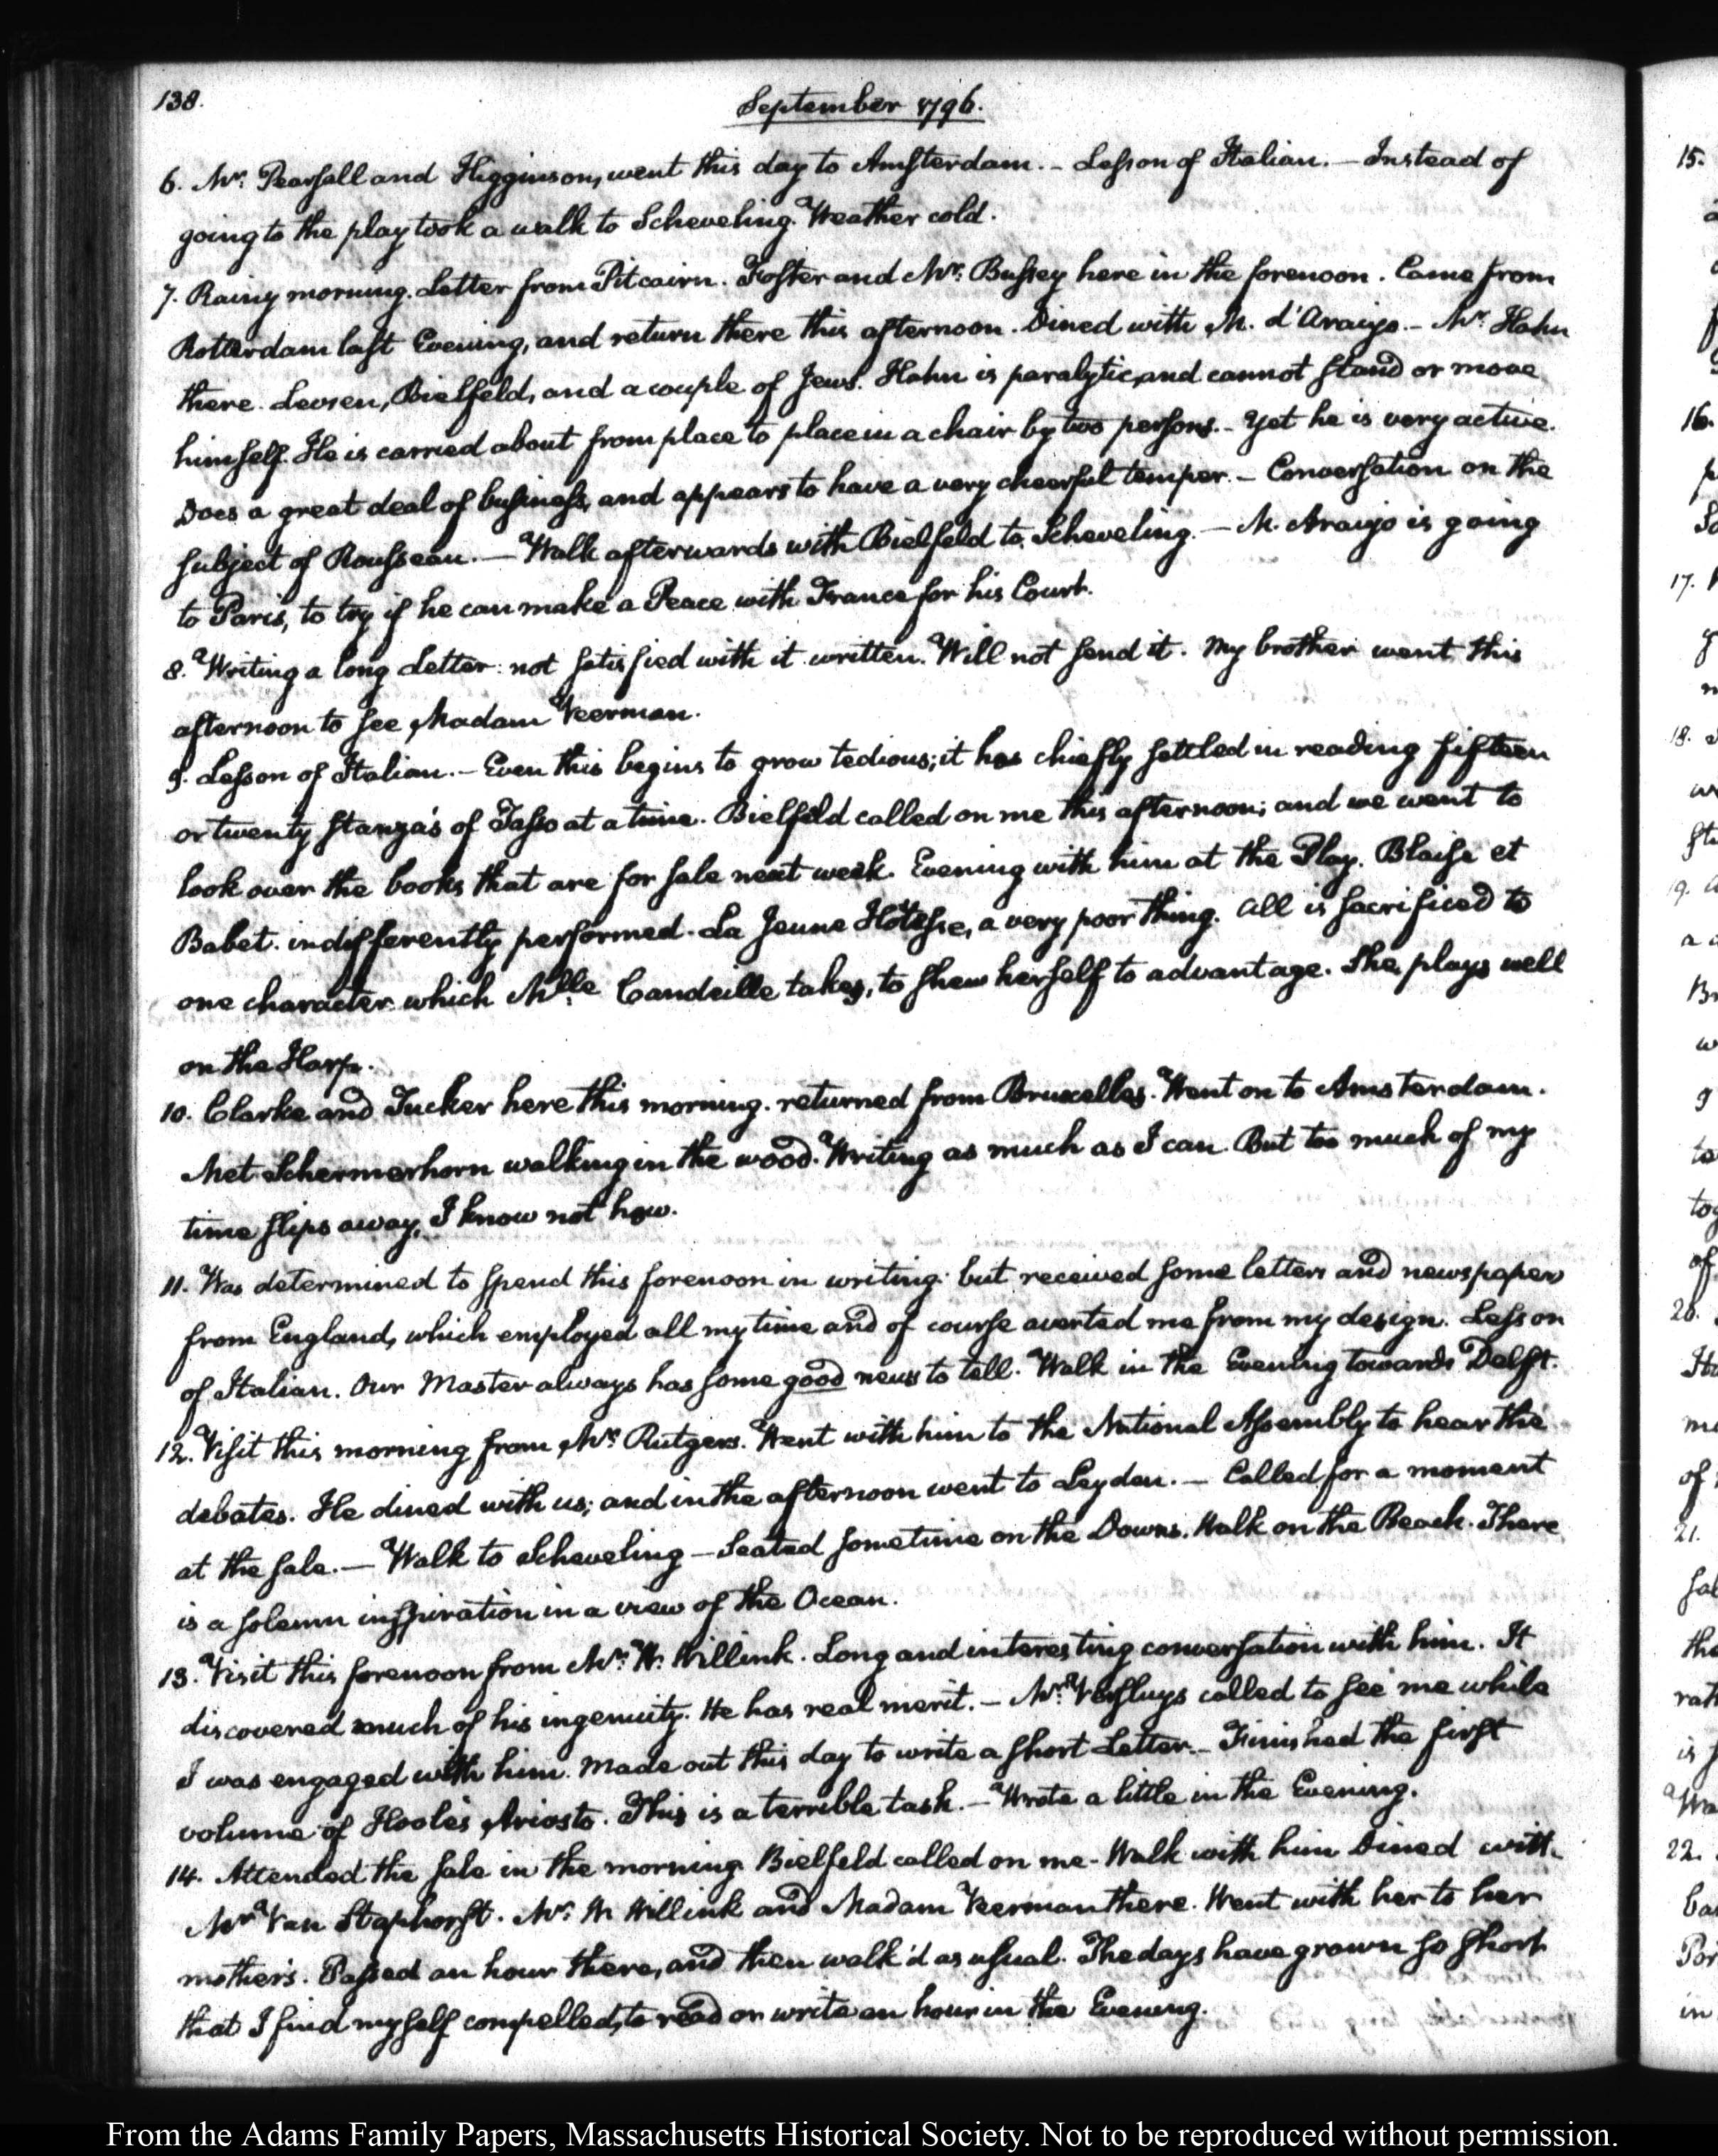 138.
September 1796.
6. Mr: Pearsall and Higginson, went this day to Amsterdam. - Lesson of Italian. - Instead of
going to the play took a walk to Scheveling. Weather cold.
7. Rainy morning. Letter from Pitcairn. Foster and Mr: Bussey here in the forenoon. Came from
Rotterdam last Evening, and return there this afternoon. Dined with M. d'Araujo. - Mr. Hahn
there. Levsen, Bielfeld, and a couple of Jews. Hahn is paralytic, and cannot stand or move
himself. He is carried about from place to place in a chair by two persons. - Yet he is very active.
Does a great deal of business, and appears to have a very cheerful temper. - Conversation on the
subject of Rousseau. — Walk afterwards with Bielfeld to Scheveling. — M. Araujo is going
to Paris, to try if he can make a Peace with France for his Court.
8. Writing a long Letter: not satisfied with it written. Will not send it. My brother went this
afternoon to see Madam Veerman.
9. Lesson of Italian. - Even this begins to grow tedious; it has chiefly settled in reading fifteen
or twenty stanza's of Tasso at a time. Bielfeld called on me this afternoon; and we went to
look over the books that are for sale next week. Evening with him at the Play. Blaise et
Babet. indifferently performed. La Jeune Hôtesse, a very poor thing. All is sacrificed to
one character which Mlle Candeille takes, to shew herself to advantage. She plays well
on the Harp.
10. Clarke and Tucker here this morning. returned from Bruxelles. Went on to Amsterdam.
Met Schermerhorn walking in the wood. Writing as much as I can. But too much of my
time slips away, I know not how.
11. Was determined to spend this forenoon in writing: but received some letters and newspapers
from England, which employed all my time and of course averted me from my design. Lesson
of Italian. Our Master always has some good news to tell. Walk in the Evening towards Delft.
12. Visit this morning from Mr. Rutgers. Went with him to the National Assembly to hear the
debates. He dined with us; and in the afternoon went to Leyden. — Called for a moment
at the sale. — Walk to Scheveling — Seated sometime on the Downs. Walk on the Beach. There
is a solemn inspiration in a view of the Ocean.
13. Visit this forenoon from Mr: W. Willink. Long and interesting conversation with him. It
discovered much of his ingenuity. He has real merit. - Mr. Versluys called to see me while
I was engaged with him. Made out this day to write a short Letter. - Finished the first
volume of Hoole's Ariosto. This is a terrible task. - Wrote a little in the Evening.
14. Attended the sale in the morning. Bielfeld called on me - Walk with him Dined with
Mr Van Staphorst. Mr. W. Willink and Madam Veerman there. Went with her to her
mother's. Passed an hour there, and then walk'd as usual. The days have grown so short
that I find myself compelled, to read or write an hour in the Evening.
15.
16.
17.
18.
19.
20.
21.
22.
From the Adams Family Papers, Massachusetts Historical Society. Not to be reproduced without permission.